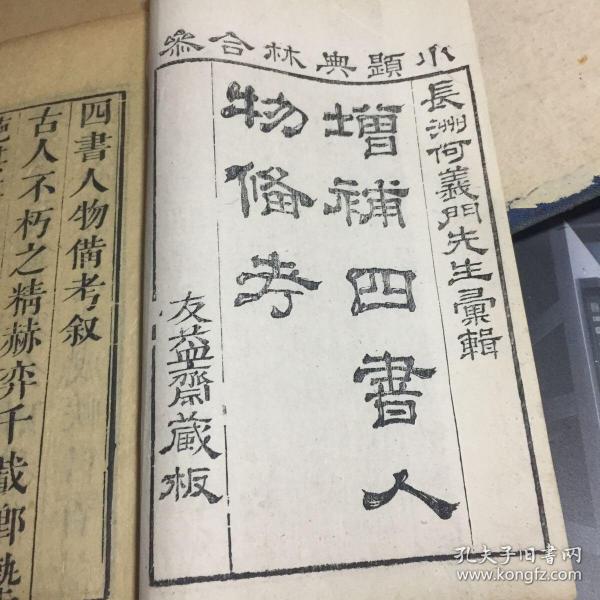 小題典林合參
長洲何義門先生彙輯
增補四書人
物備考
友益齋藏板
四書人物備考叙
古人不朽之精赫奕千載郎
孔夫子旧书网
www.kongfz.com